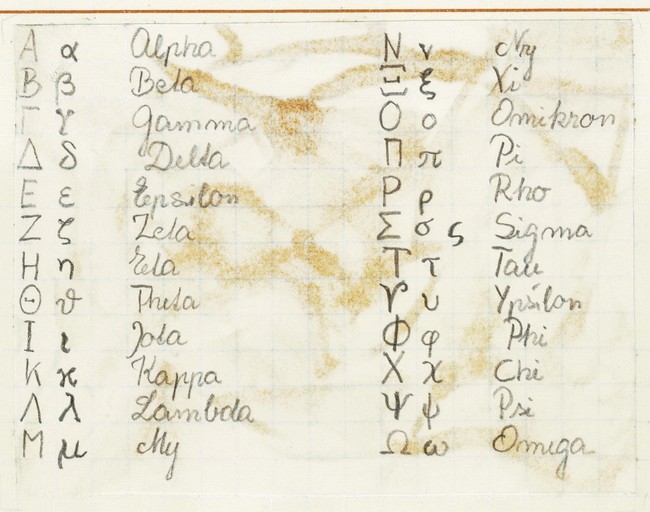 Α α Alpha
Β β Beta
Γ γ Gamma
Δ δ Delta
Ε ε Epsilon
Ζ ζ Zeta
Η η Eta
Θ ϑ Theta
Ι ι Jota
Κ ϰ Kappa
Λ λ Lambda
Μ μ My
Ν ν Ny
Ξ ξ Xi
Ο ο Omikron
Π π Pi
Ρ ρ Rho
Σ σ ς Sigma
Τ τ Tau
ϒ υ Ypsilon
Φ φ Phi
Χ χ Chi
Ψ ψ Psi
Ω ω Omega